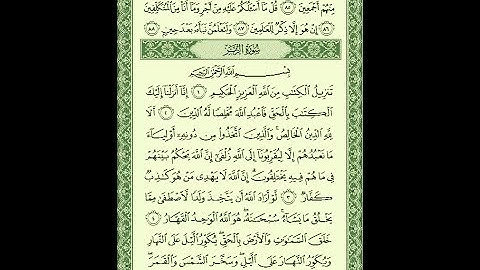 مِنْهُمْ أَجْمَعِينَ ۝٨٥ قُلْ مَا أَسْأَلُكُمْ عَلَيْهِ مِنْ أَجْرٍ وَمَا أَنَا مِنَ الْمُتَكَلِّفِينَ
۝٨٦ إِنْ هُوَ إِلَّا ذِكْرٌ لِلْعَالَمِينَ ۝٨٧ وَلَتَعْلَمُنَّ نَبَأَهُ بَعْدَ حِينٍ ۝٨٨
سُورَةُ الزُّمَرِ
بِسْمِ اللَّهِ الرَّحْمَٰنِ الرَّحِيمِ
تَنزِيلُ الْكِتَابِ مِنَ اللَّهِ الْعَزِيزِ الْحَكِيمِ ۝١ إِنَّا أَنزَلْنَا إِلَيْكَ
الْكِتَابَ بِالْحَقِّ فَاعْبُدِ اللَّهَ مُخْلِصًا لَهُ الدِّينَ ۝٢ أَلَا
لِلَّهِ الدِّينُ الْخَالِصُ وَالَّذِينَ اتَّخَذُوا مِن دُونِهِ أَوْلِيَاءَ
مَا نَعْبُدُهُمْ إِلَّا لِيُقَرِّبُونَا إِلَى اللَّهِ زُلْفَىٰ إِنَّ اللَّهَ يَحْكُمُ بَيْنَهُمْ
فِي مَا هُمْ فِيهِ يَخْتَلِفُونَ إِنَّ اللَّهَ لَا يَهْدِي مَنْ هُوَ كَاذِبٌ
كَفَّارٌ ۝٣ لَوْ أَرَادَ اللَّهُ أَن يَتَّخِذَ وَلَدًا لَاصْطَفَىٰ مِمَّا
يَخْلُقُ مَا يَشَاءُ سُبْحَانَهُ هُوَ اللَّهُ الْوَاحِدُ الْقَهَّارُ ۝٤
خَلَقَ السَّمَاوَاتِ وَالْأَرْضَ بِالْحَقِّ يُكَوِّرُ اللَّيْلَ عَلَى النَّهَارِ
وَيُكَوِّرُ النَّهَارَ عَلَى اللَّيْلِ وَسَخَّرَ الشَّمْسَ وَالْقَمَرَ